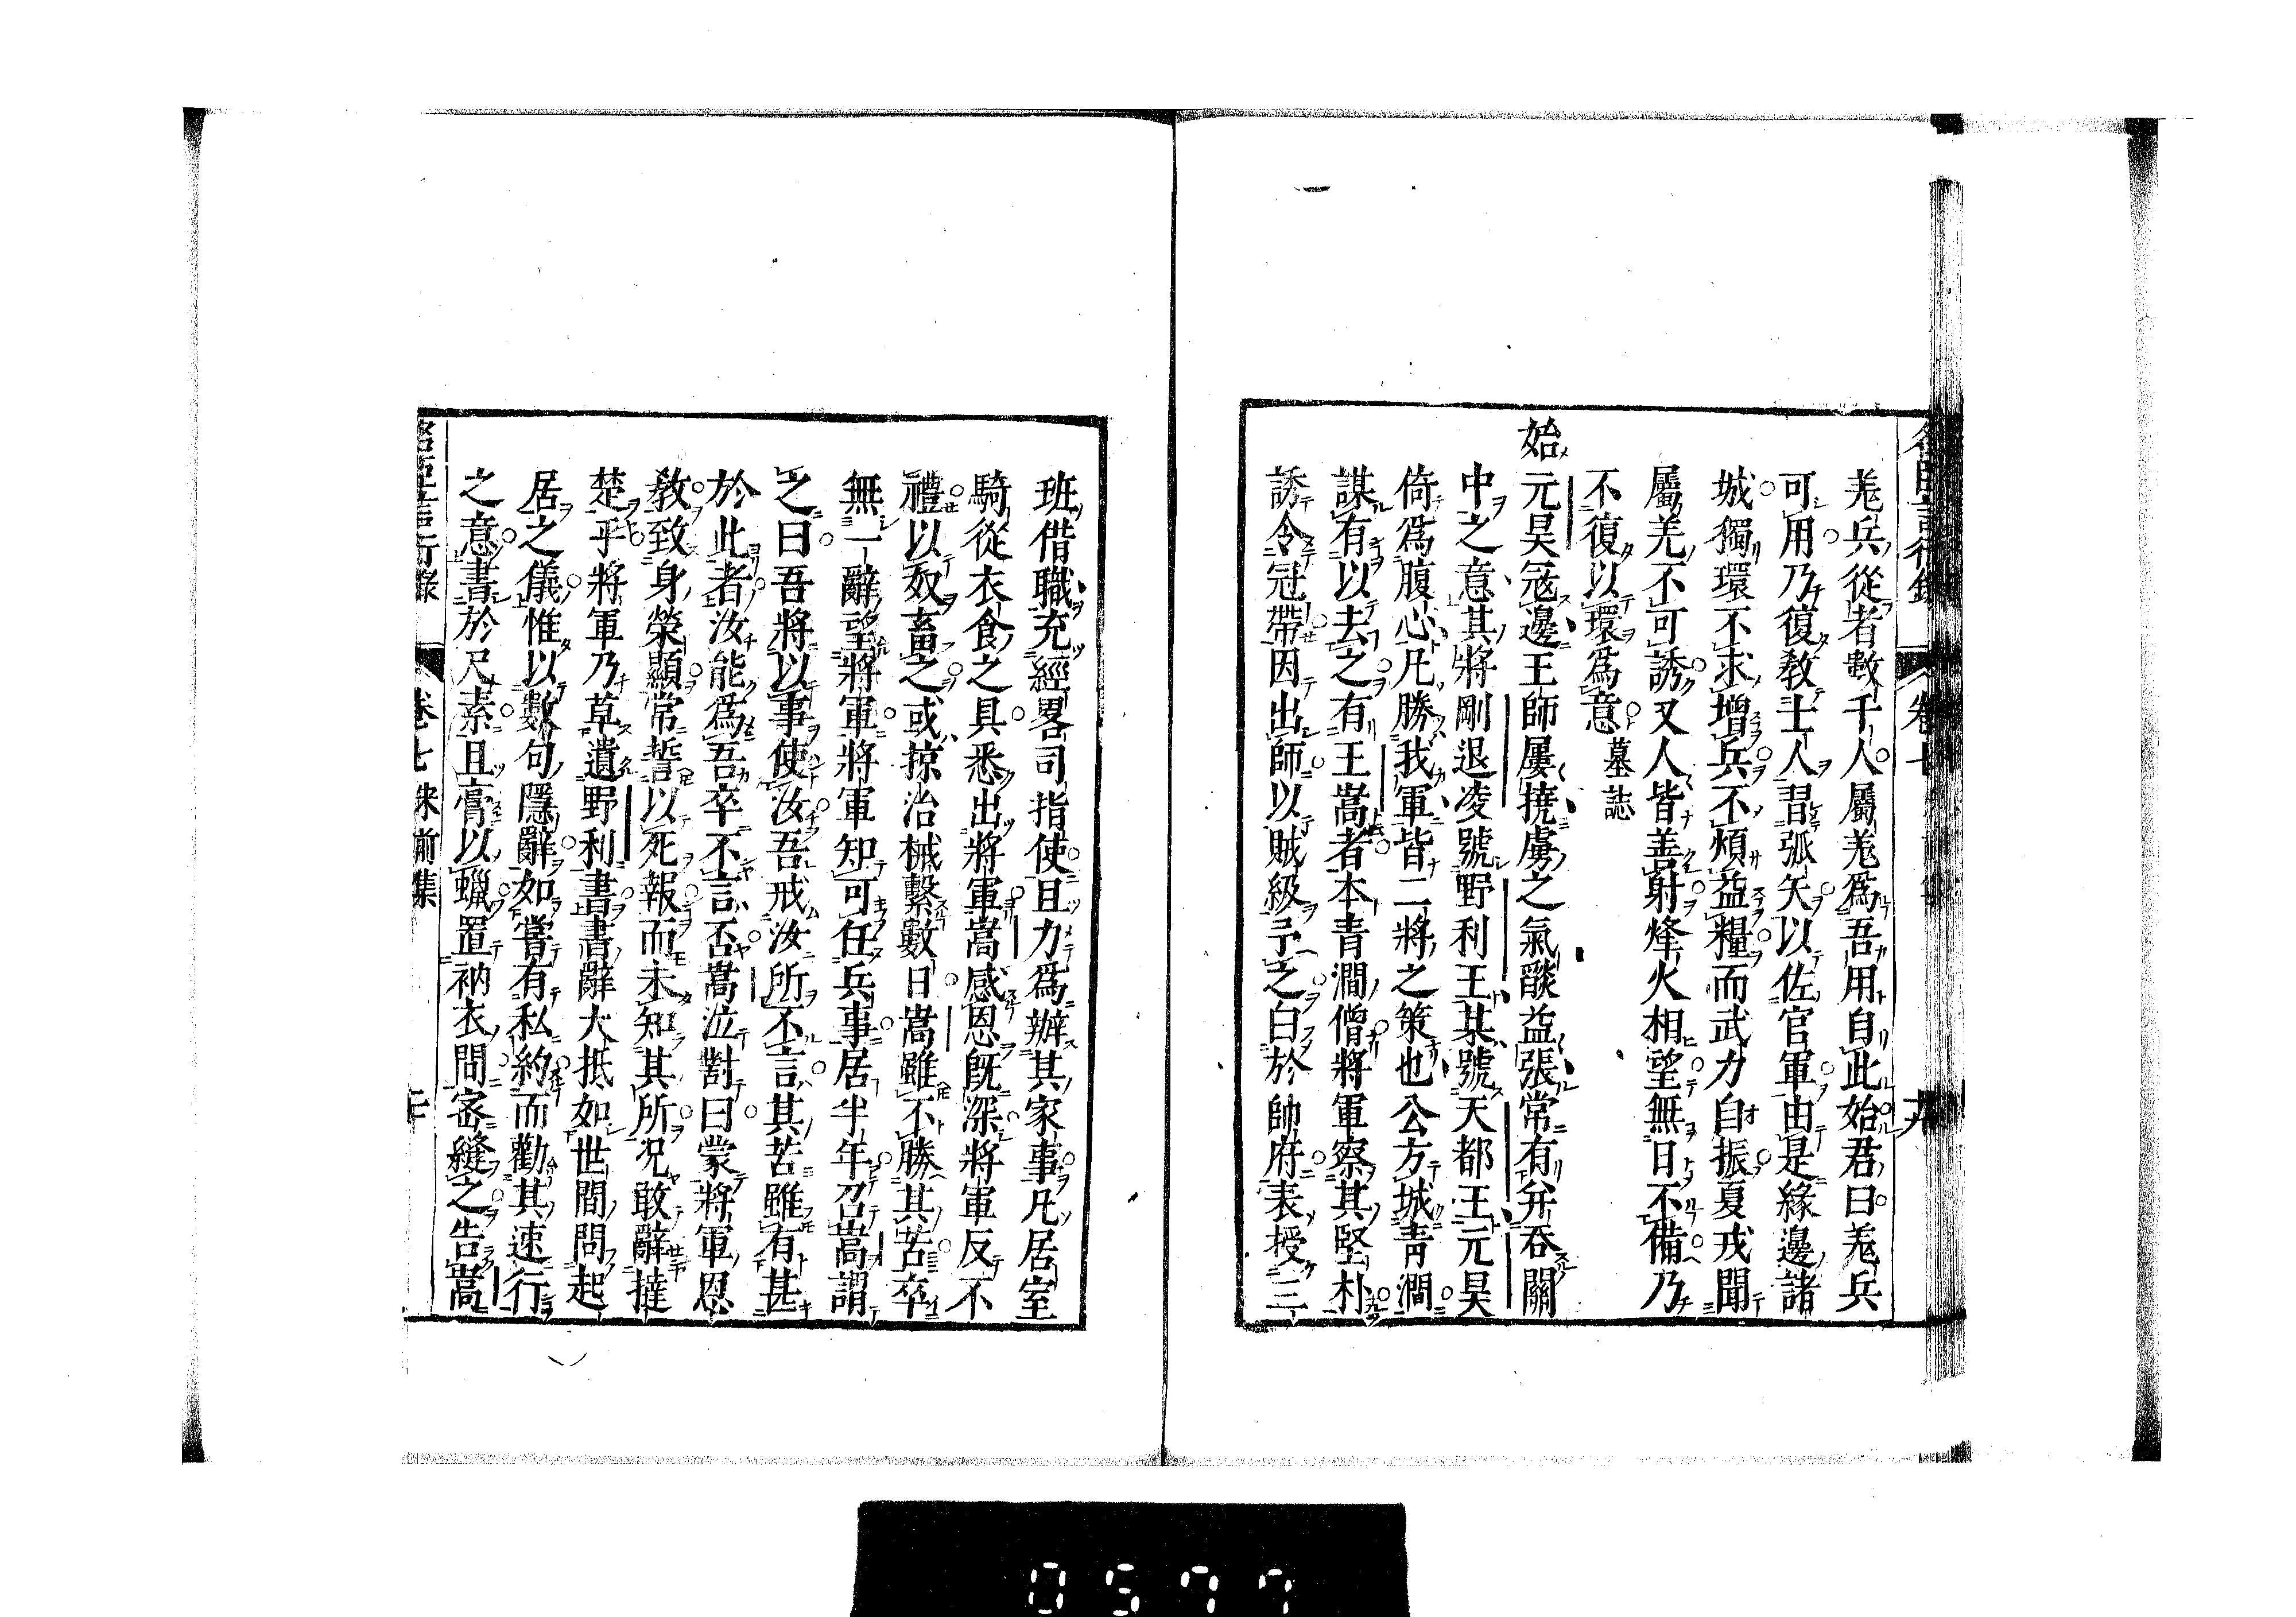 羌兵從者數千人屬羌爲吾用自此始君曰羌兵
可用乃復敎士人習弧矢以佐官軍由是緣邊諸
城獨環不求增兵不煩益糧而武力自振夏戎聞
屬羌不可誘又人皆善射烽火相望無日不備乃
不復以環爲意 墓誌
始元昊冦邊王師屢撓虜之氣燄益張常有幷吞關
中之意其將剛退凌號野利王某號天都王元昊
倚爲腹心凡勝我軍皆二將之策也公方城靑澗
謀有以去之有王嵩者本青澗僧將軍察其堅朴
誘令冠帶因出師以賊級予之白於帥府表授三
班借職充經畧司指使且力爲辦其家事凡居室
騎從衣食之具悉出將軍嵩感恩既深將軍反不
禮以奴畜之或掠治械繫數日嵩雖不勝其苦卒
無一辭望將軍將軍知可任兵事居半年召嵩謂
之曰吾將以事使汝吾戒汝所不言其苦雖有甚
於此者汝能爲吾卒不言否嵩泣對曰蒙將軍恩
敎致身榮顯常誓以死報而未知其所况敢辭撻
楚乎將軍乃草遺野利書書辭大抵如世間問起
居之儀惟以數句隱辭如嘗有私約而勸其速行
之意書於尺素且膏以蠟置衲衣間密縫之告嵩
名臣言行錄 卷七 朱前集 二十